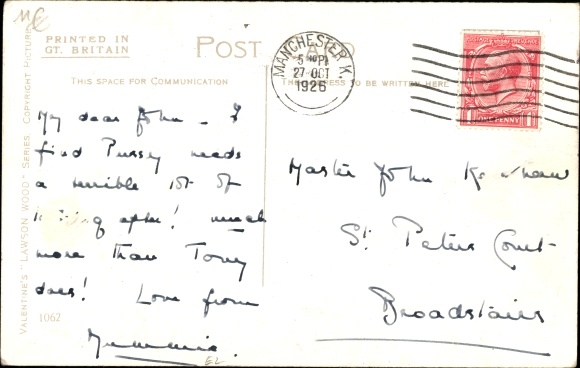 PRINTED IN
GT. BRITAIN
POST CARD
THIS SPACE FOR COMMUNICATION
THE ADDRESS TO BE WRITTEN HERE
MANCHESTER K.
5 PM
27 OCT
1926
ONE PENNY
My dear John - I
find Pussy needs
a terrible lot of
looking after! much
more than Tony
does! Love from
Mummie.
EL
Master John
St. Peters Court
Broadstairs
VALENTINE'S "LAWSON WOOD" SERIES. COPYRIGHT PICTURE
1062